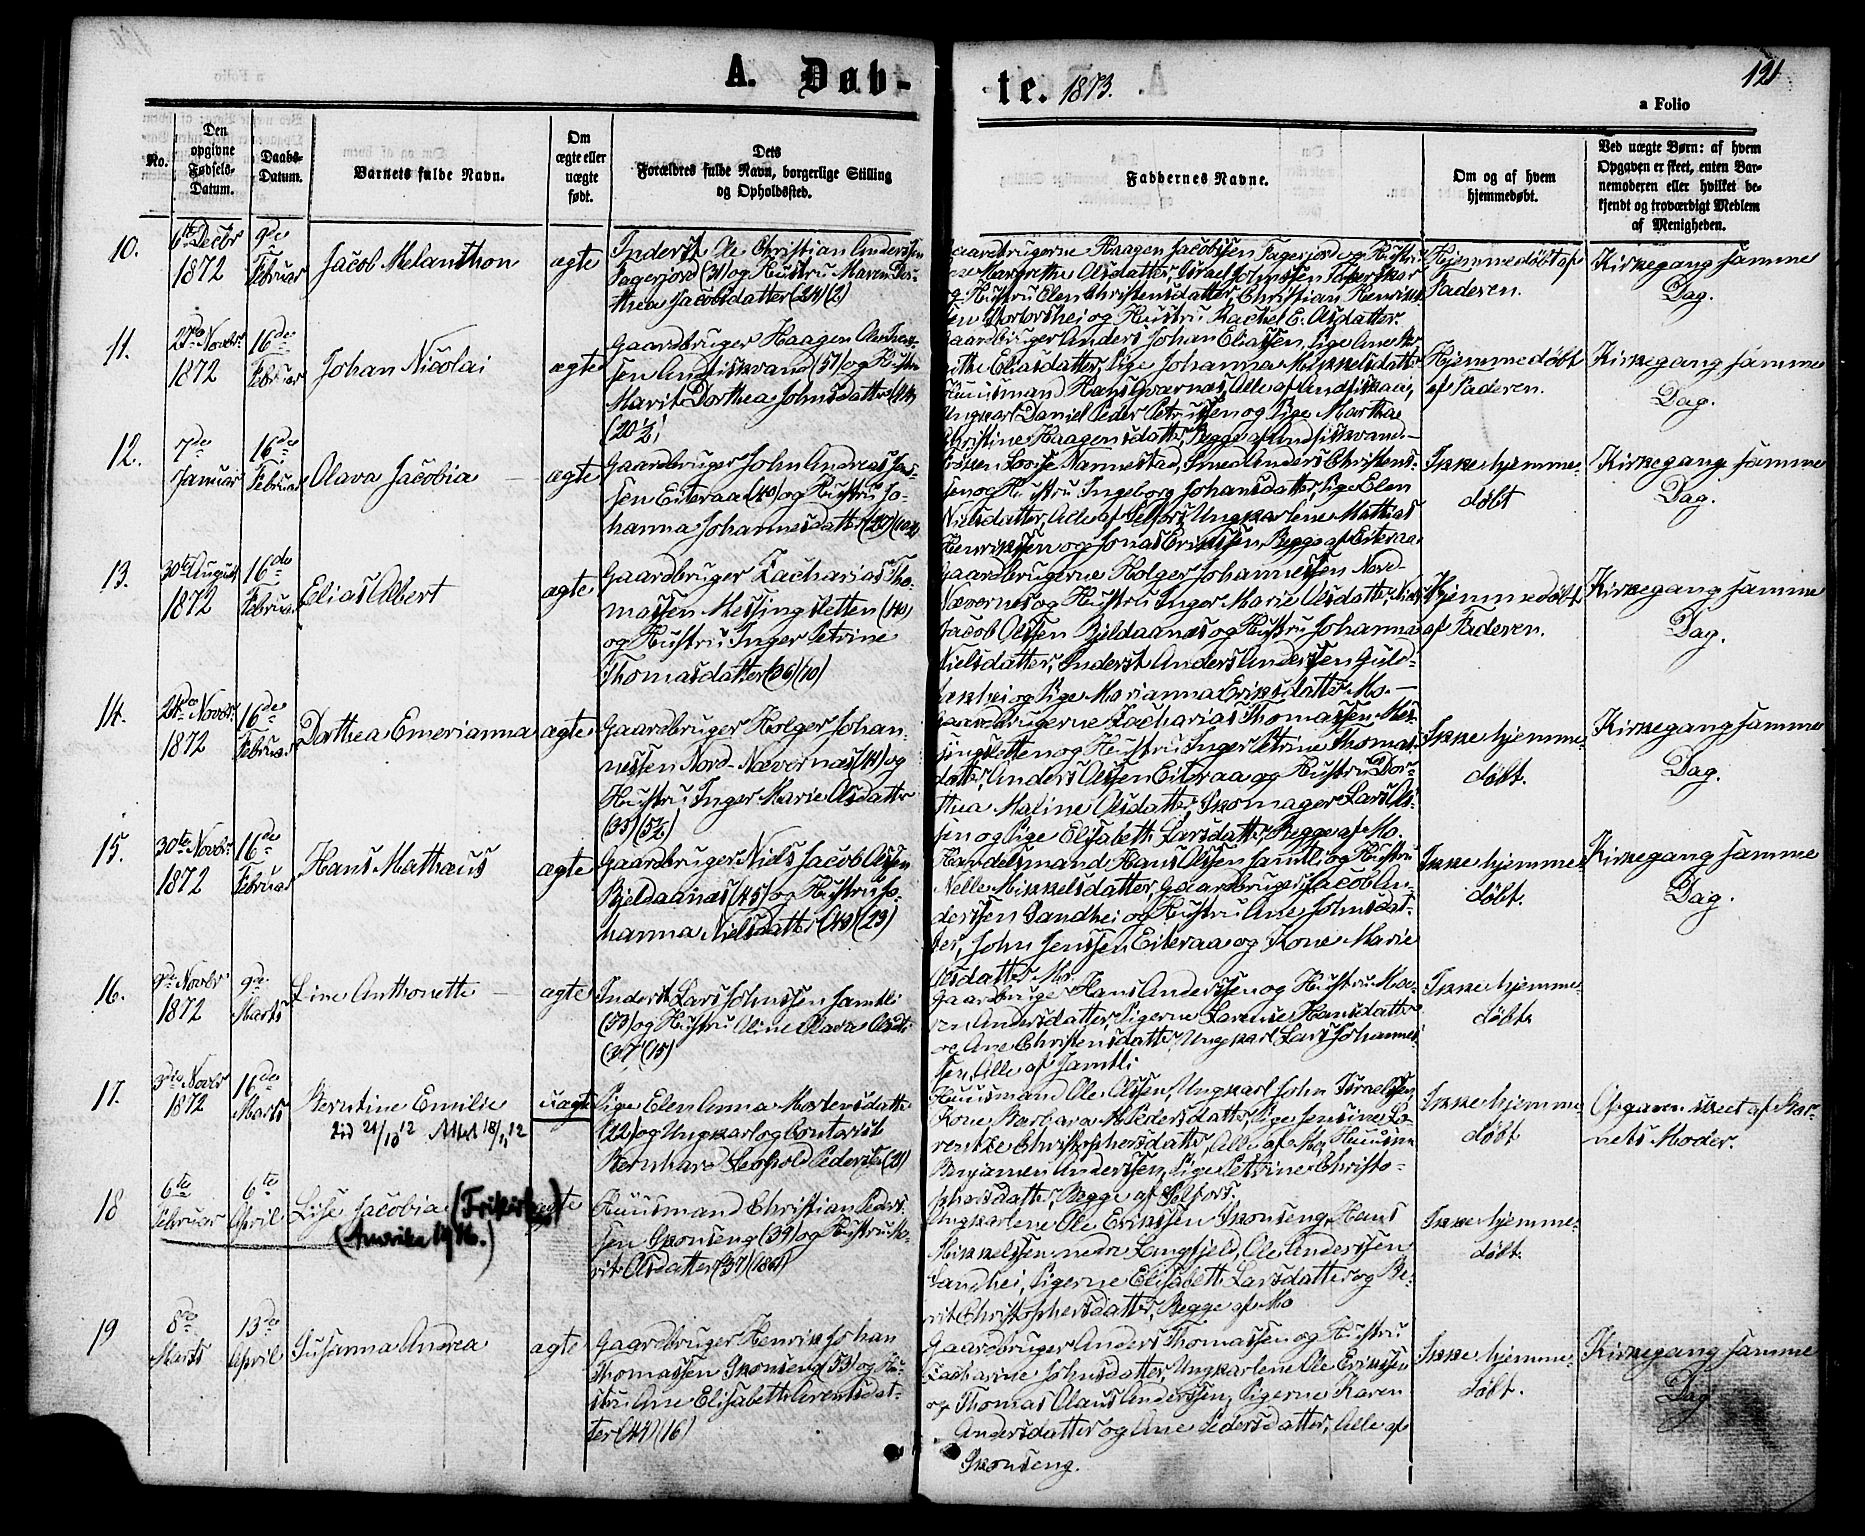 A. Døb-
te. 1873.
121
a Folio
No.
Den opgivne Fødsels-Datum.
Daabs-Datum.
Barnets fulde Navn.
Om ægte eller uægte født.
Dets Forældres fulde Navn, borgerlige Stilling og Opholdssted.
Faddernes Navne.
Om og af hvem hjemmedøbt.
Ved uægte Børn: af hvem Opgaven er skeet, enten Barnemoderen eller hvilket bekjendt og troværdigt Medlem af Menigheden.
10.
6te Decbr
1872
9de
Februar
Jacob Melanthon
ægte
Inderst Ole Christian Anderssen
Fagerjord (31) og Hustru Maren Dor-
thea Jacobsdatter (24) (2)
Gaardbrugerne Haagen Jacobssen Fagerjord og Hustru
Margrethe Olsdatter, Israel Johnssen
og Hustru Elen Christensdatter, Christian Henriks-
sen og Hustru Rachel E. Olsdatter.
Hjemmedøbt af
Faderen.
Kirkegang samme
Dag.
11.
Novbr.
1872
16de
Februar
Johan Nicolai
ægte
Gaardbruger Haagen
sen Andfiskvand (51) og Hustru
Marit Dorthea Johnsdatter (44)
(20½)
Gaardbruger Anders Johan Eliassen, Pige Ane
Eliasdatter, Pige Johanna Mikkelsdatter
Huusmand Hans Alle af Andfiskaa,
Ungkarl Daniel Peder Petersen og Pige Martha
Christine Haagensdatter, Begge af Andfiskvand.
Hjemmedøbt
af Faderen.
Kirkegang samme
Dag.
12.
7de
Januar
16de
Februar
Olava Jacobia
ægte
Gaardbruger John Andreas
sen Eiteraa (40) og Hustru Jo-
hanna Johannesdatter (29)
Frøken Lovise Nannestad, Smed Anders Christens-
sen og Hustru Ingeborg Johansdatter, Pige Elen
Nielsdatter, Alle af Selfors, Ungkarlene Mathias
Henrikssen og Jonas Erikssen, Begge af Eiteraa
Ikke hjemme-
døbt
Kirkegang samme
Dag.
13.
30te August
1872
16de
Februar
Elias Albert
ægte
Gaardbruger Zacharias Tho-
massen Messingsletten (40)
og Hustru Inger Petrine
Thomasdatter (36) (10)
Gaardbrugerne Holger Johannessen Nord-
Nævernes og Hustru Inger Marie Olsdatter, Niels
Jacob Olssen Bjeldaanæs og Hustru Johanna
Nielsdatter, Inderst Anders Anderssen Guld-
og Pige Marianna Eriksdatter Mo.
Hjemmedøbt
af Faderen.
Kirkegang samme
Dag.
14.
24de Novbr.
1872
16de
Februar
Dorthea Emerianna
ægte
Gaardbruger Holger Johan-
nessen Nord-Nævernæs (40) og
Hustru Inger Marie Olsdatter
(35) (5½)
Gaardbrugerne Zacharias Thomassen Mes-
singsletten og Hustru Inger Petrine Thomas-
datter, Anders Olssen Eiteraa og Hustru Dor-
thea Maline Olsdatter, Skomager Lars Ols-
sen og Pige Elisabeth Larsdatter, Begge af Mo.
Ikke hjemme-
døbt.
Kirkegang samme
Dag.
15.
30te Novbr.
1872
16de
Februar
Hans Mathæus
ægte
Gaardbruger Niels Jacob Olssen
Bjeldaanæs (45) og Hustru Jo-
hanna Nielsdatter (40) (23)
Handelsmand Hans Olssen Jamtli og Hustru
Nelle Mikkelsdatter, Gaardbruger Jacob An-
derssen Sandhei og Hustru Ane Johnsdat-
ter, John Jenssen Eiteraa og Kone Marie
Olsdatter Mo.
Ikke hjemme-
døbt.
Kirkegang samme
Dag.
16.
9de Novbr
1872
9de
Marts
Line Anthonette
ægte
Inderst Lars Johnssen Jamtli
(53) og Hustru Oline Olava Olsdtr
(27) (15)
Gaardbruger Hans Anderssen og Hustru Ma-
ren Andersdatter, Pigerne Lorense Hansdatter
og Ane Christensdatter, Ungkarl Lars Johannes-
sen, Alle af Jamtli
Ikke hjemme-
døbt.
17.
3die Novbr
1872
16de
Marts
Berntine Emilie
21/10 12 18/11 12
uægte
Pige Elen Anna Mortensdatter
(22) og Ungkarl og Contorist
Bernhard Leopold Pedersen (21)
Huusmand Ole Olssen, Ungkarl John Israelssen,
Kone Barbara M Pedersdatter, Pige Jensine Lo-
rentze Christophersdatter, Alle af Mo, Huusmand
Benjamin Anderssen, Pige Petrine Christo-
phersdatter, Begge af Selfors.
Ikke hjemme-
døbt
Opgaven skeet af Bar-
nets Moder.
18
6te
Februar
6te
April
Lise Jacobia (Frikirken)
(Amerika
ægte
Huusmand Christian Peders-
sen Skonseng (39) og Hustru Be-
rit Olsdatter (37)
Ungkarlene Ole Erikssen Skonseng, Hans
Mikkelssen nedre Langfjeld, Ole Anderssen
Sandhei, Pigerne Elisabeth Larsdatter og Be-
rit Christophersdatter, Begge af Mo
Ikke hjemme-
døbt.
19
8de
Marts
13de
April
Susanna Andrea
ægte
Gaardbruger Henrik Johan
Thomassen Skonseng (53) og Hu-
stru Ane Elisabeth Arentsdat-
ter (44) (16)
Gaardbruger Anders Thomassen og Hustru
Zacharine Johnsdatter, Ungkarlene Ole Erikssen
og Thomas Olaus Anderssen, Pigerne Karen
Andersdatter og Ane Pedersdatter, Alle af
Skonseng.
Ikke hjemme-
døbt.
Kirkegang samme
Dag